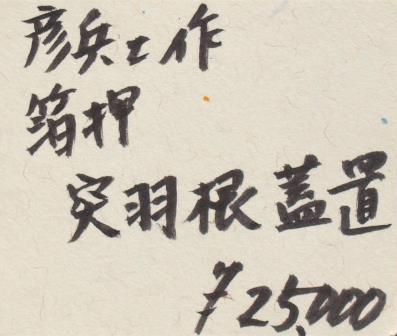 彦兵ヱ作
箔押
突羽根蓋置
¥25,000